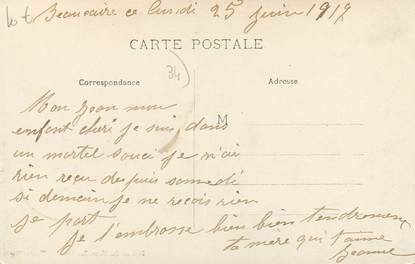 Lot
Beaucaire ce lundi 25 juin 1917
CARTE POSTALE
Correspondance
Adresse
34
M
Mon Jean mon
enfant cheri je suis dans
un mortel souci je n'ai
rien reçu depuis samedi
si demain je ne recois rien
je part
je t'embrasse bien bien tendrement
ta mère qui t'aime
Jeanne